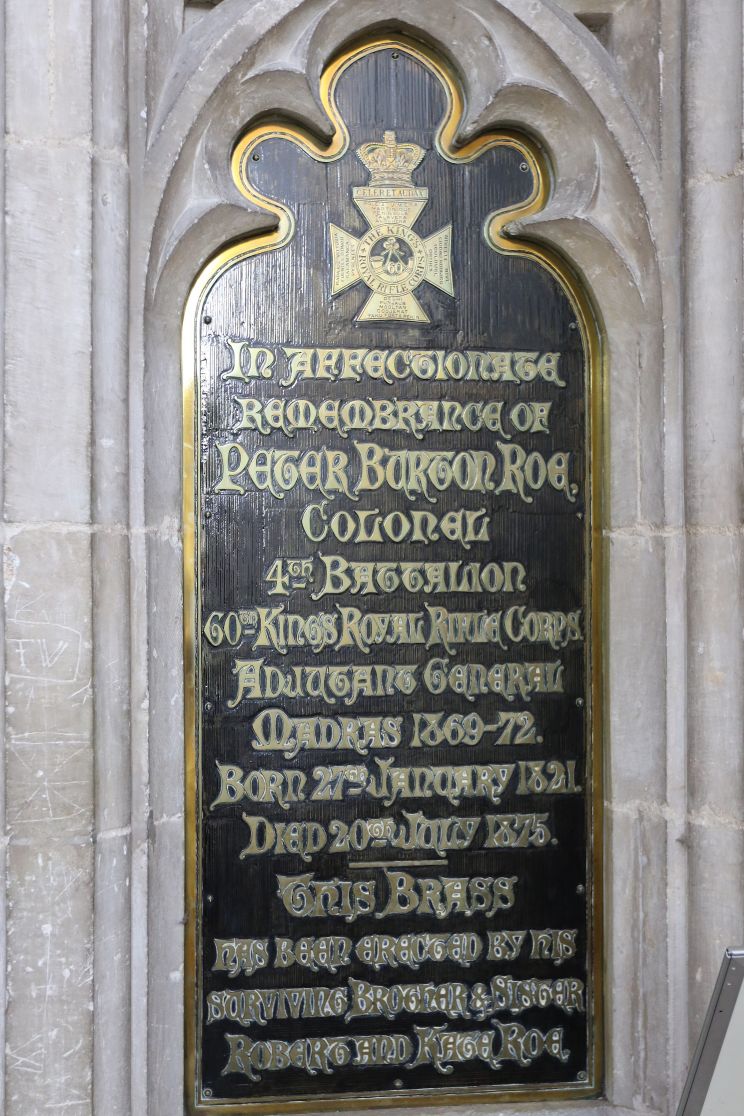 CELER ET AUDAX
THE KING'S
ROYAL RIFLE CORPS
60
IN AFFECTIONATE
REMEMBRANCE OF
PETER BURTON ROE,
COLONEL
4TH BATTALION
60TH KINGS ROYAL RIFLE CORPS.
ADJUTANT GENERAL
MADRAS 1869-72.
BORN 27TH JANUARY 1821.
DIED 20TH JULY 1875.
THIS BRASS
HAS BEEN ERECTED BY HIS
SURVIVING BROTHER & SISTER
ROBERT AND KATE ROE.